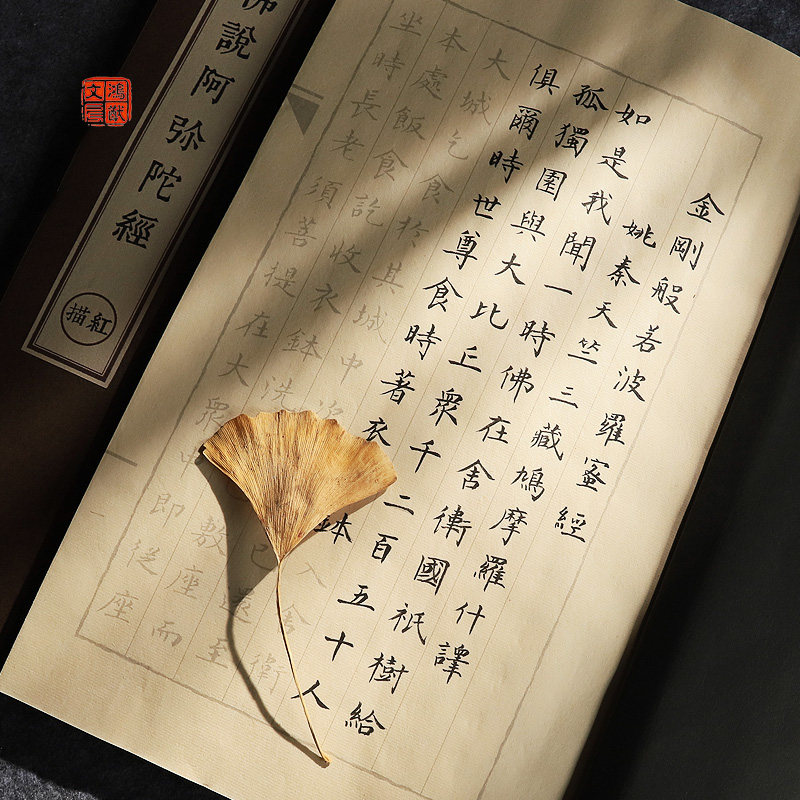 金剛般若波羅蜜經
姚秦天竺三藏鳩摩羅什譯
如是我聞一時佛在舍衛國祇樹給
孤獨園與大比丘眾千二百五十人
俱爾時世尊食時著衣鉢入舍衛
大城乞食於其城中次已還至
本處飯食訖收衣鉢洗敷座而
坐時長老須菩提在大眾中即從座
佛說阿弥陀經
描紅